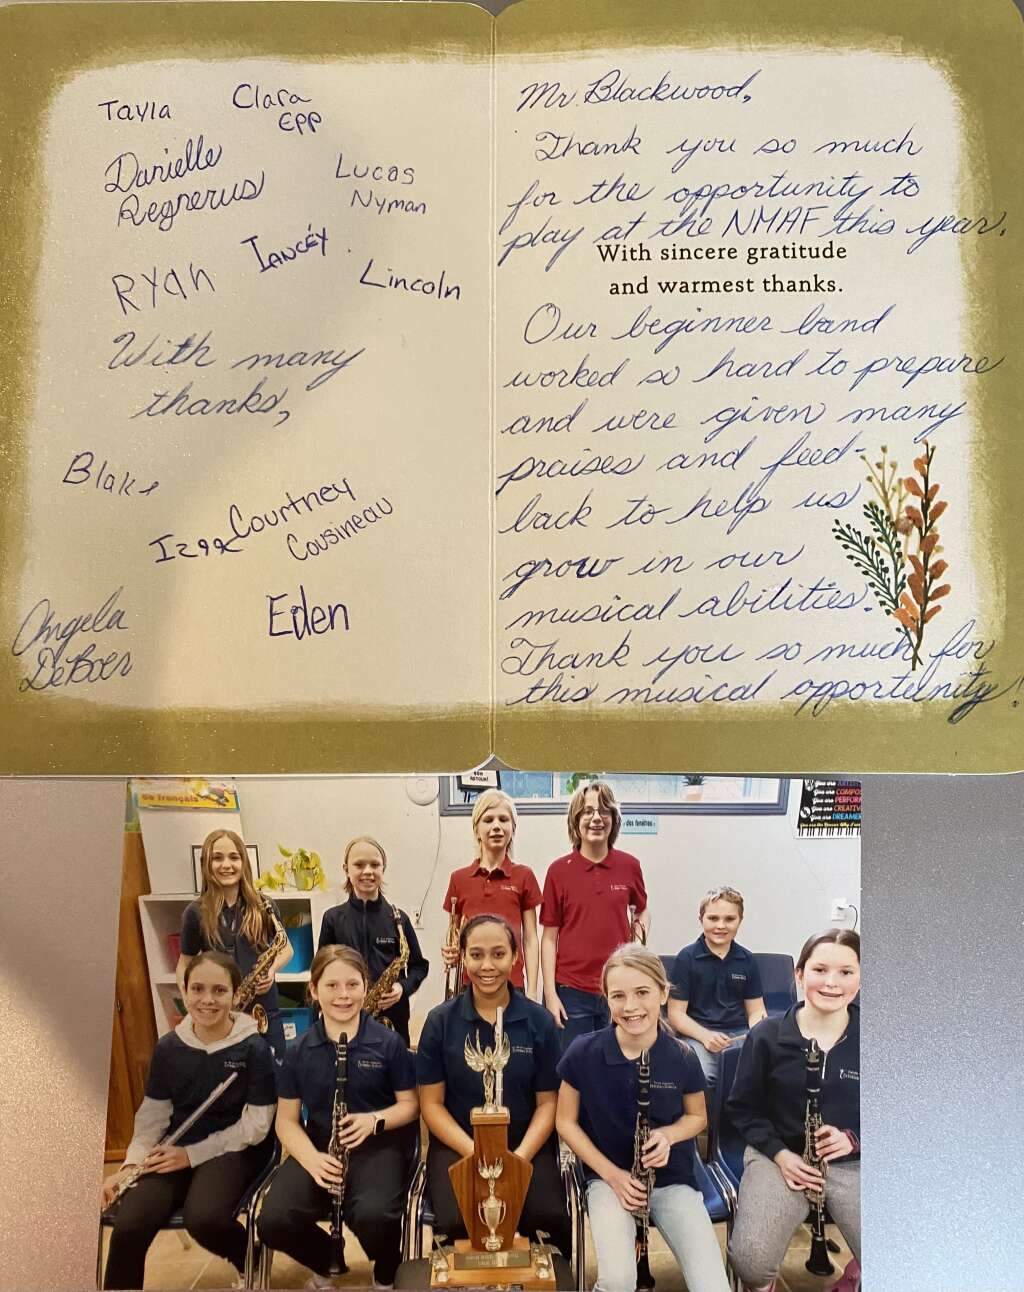 Tayla
Clara
Epp
Danielle
Regnerus
Lucas
Nyman
Ryan
Iancéy
Lincoln
With many
thanks,
Blake
Courtney
Cousineau
Eden
Angela
DeBoer
Mr. Blackwood,
Thank you so much
for the opportunity to
play at the NMAF this year.
With sincere gratitude
and warmest thanks.
Our beginner band
worked so hard to prepare
and were given many
praises and feed-
back to help us
grow in our
musical abilities.
Thank you so much for
this musical opportunity!
en français
BON
RETOUR!
« des fenêtres »
You are
You are COMPOS
You are PERFOR
You are CREATIV
You are DREAME